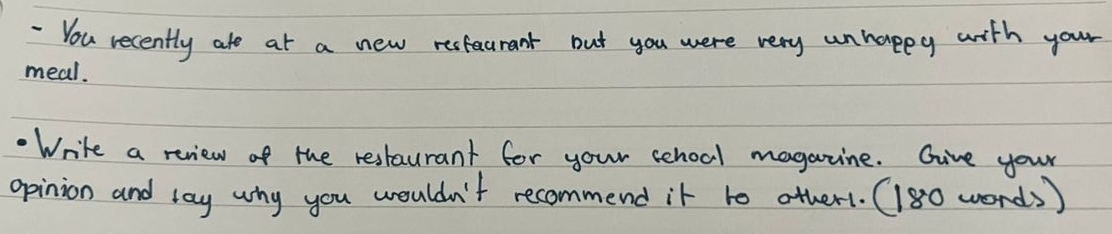 - You recently ate at a new restaurant but you were very unhappy with your
meal.
• Write a review of the restaurant for your school magazine. Give your
opinion and say why you wouldn't recommend it to others. (180 words)